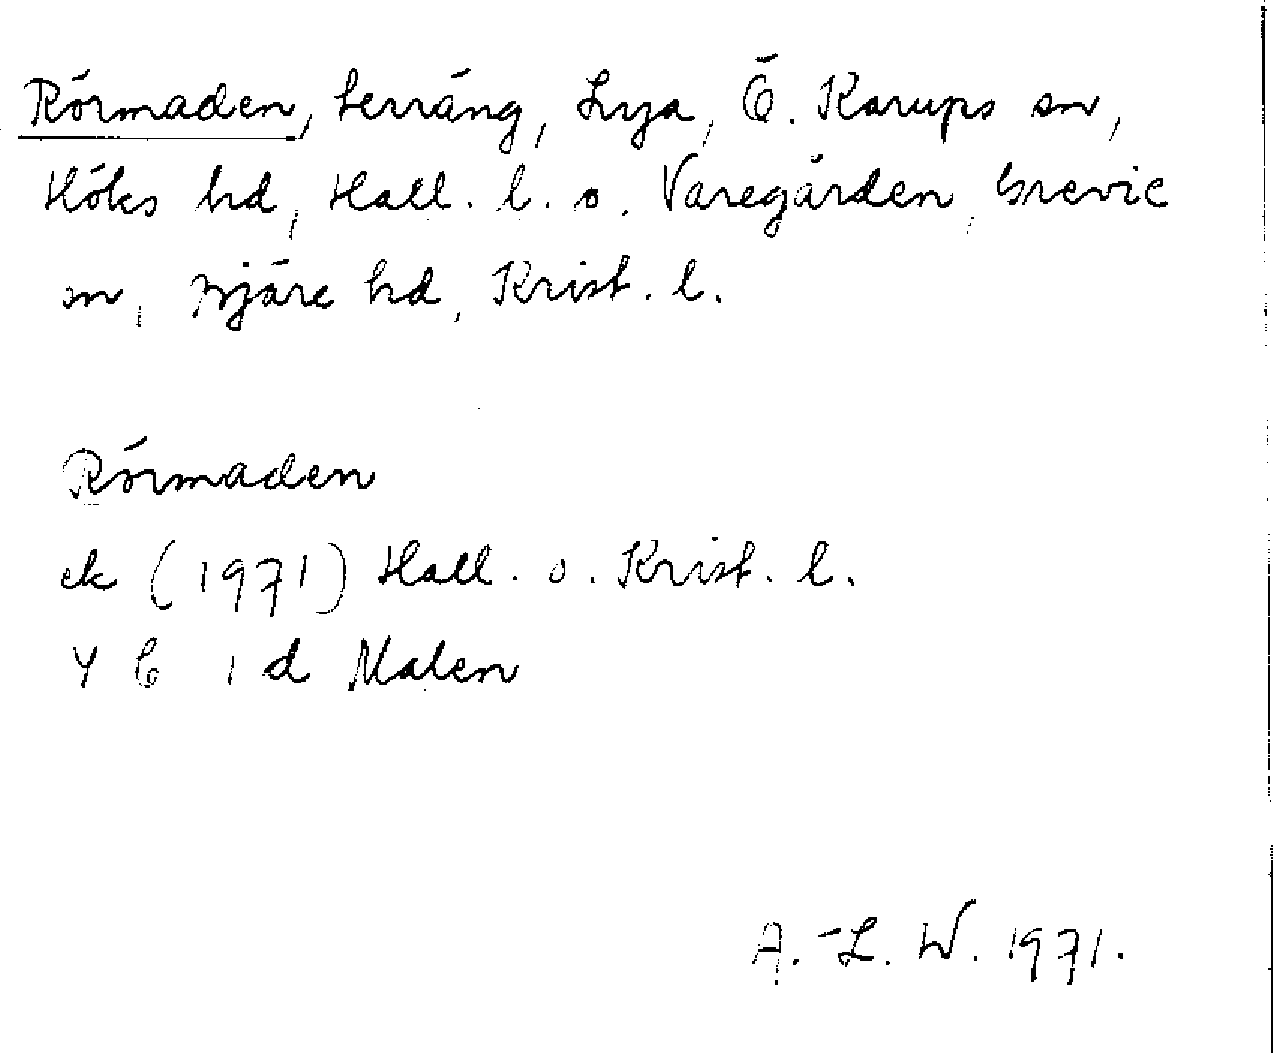 Rörmaden, terräng, Lya, Ö. Karups sn,
Höks hd, Hall. l. o. Varegården, Grevie
sn, Bjäre hd, Krist. l.
Rörmaden
ek (1971) Hall. o. Krist. l.
4 C 1 d Malen
A.-L. W. 1971.